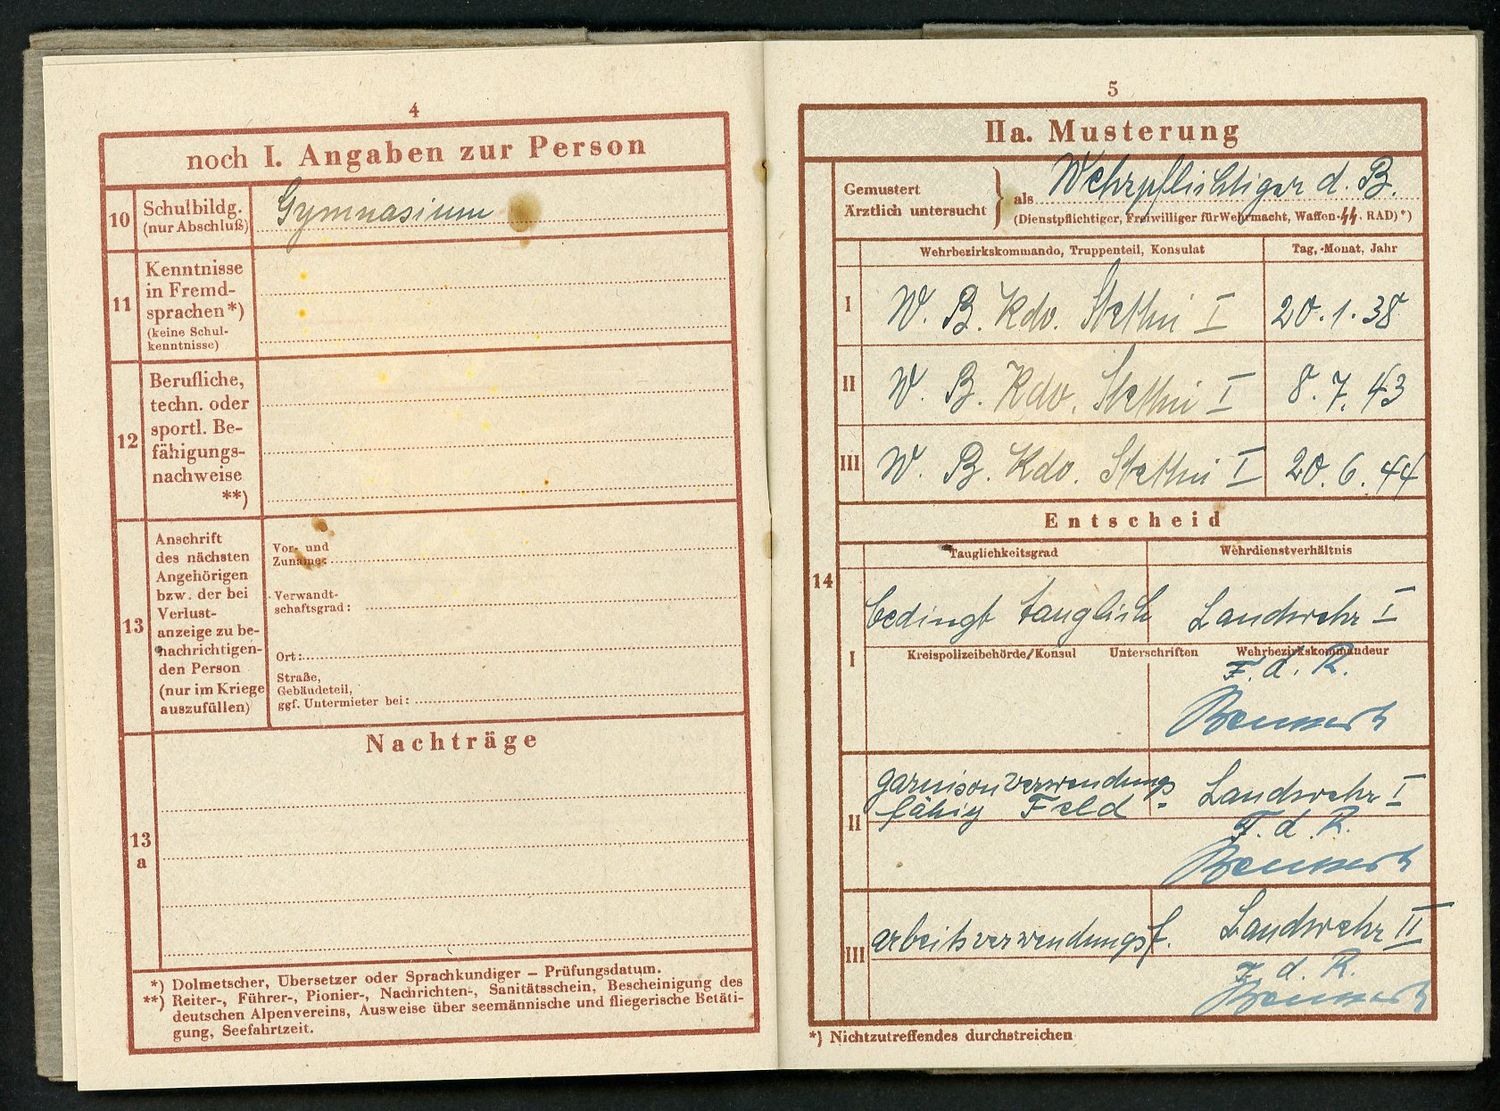 4
noch I. Angaben zur Person
10
Schulbildg.
(nur Abschluß)
Gymnasium
11
Kenntnisse
in Fremd-
sprachen*)
(keine Schul-
kenntnisse)
12
Berufliche,
techn. oder
sportl. Be-
fähigungs-
nachweise
**)
13
Anschrift
des nächsten
Angehörigen
bzw. der bei
Verlust-
anzeige zu be-
nachrichtigen-
den Person
(nur im Kriege
auszufüllen)
Vor- und
Zuname:
Verwandt-
schaftsgrad:
Ort:
Straße,
Gebäudeteil,
ggf. Untermieter bei:
Nachträge
13
a
*) Dolmetscher, Übersetzer oder Sprachkundiger – Prüfungsdatum.
**) Reiter-, Führer-, Pionier-, Nachrichten-, Sanitätsschein, Bescheinigung des
deutschen Alpenvereins, Ausweise über seemännische und fliegerische Betäti-
gung, Seefahrtzeit.
5
IIa. Musterung
Gemustert
Ärztlich untersucht
als Wehrpflichtiger d. B.
(Dienstpflichtiger, Freiwilliger für Wehrmacht, Waffen-SS, RAD)*)
Wehrbezirkskommando, Truppenteil, Konsulat Tag, Monat, Jahr
I W. B. Kdo. Stettin I 20.1.38
II W. B. Kdo. Stettin I 8.7.43
III W. B. Kdo. Stettin I 20.6.44
Entscheid
14
Tauglichkeitsgrad Wehrdienstverhältnis
bedingt tauglich Landwehr I
I
Kreispolizeibehörde/Konsul Unterschriften Wehrbezirkskommandeur
F. d. R.
II
garnisonverwendungs- Landwehr I
fähig Feld
F. d. R.
III
arbeitsverwendungsf. Landwehr II
F. d. R.
*) Nichtzutreffendes durchstreichen